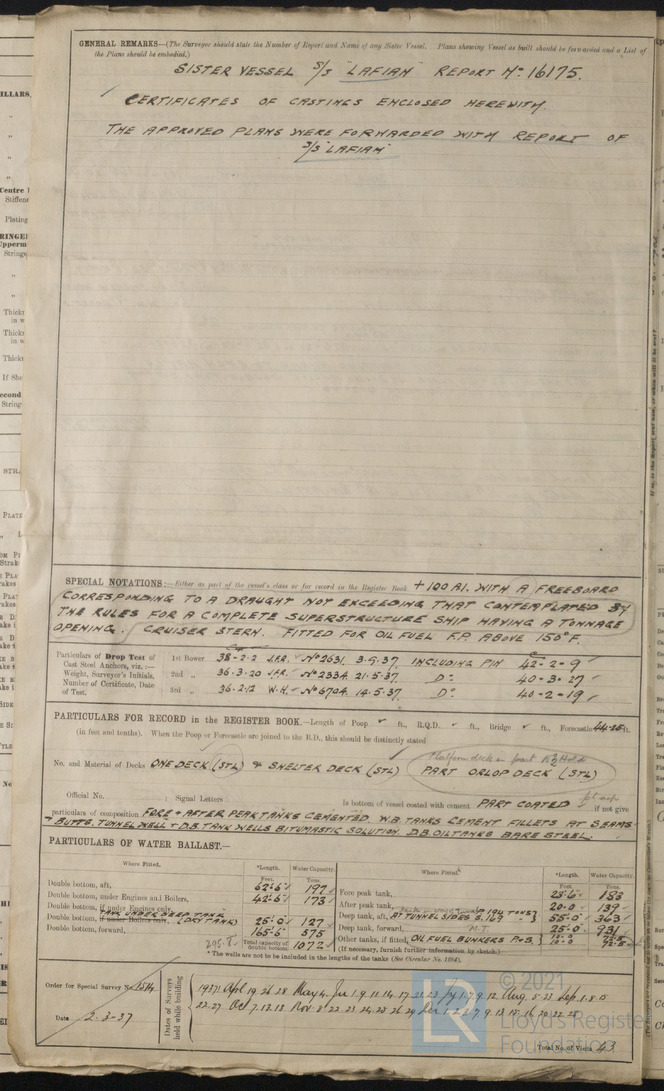 GENERAL REMARKS—(The Surveyor should state the Number of Report and Name of any Sister Vessel. Plans showing Vessel as built should be forwarded and a List of
the Plans should be embodied.)
SISTER VESSEL S/S "LAFIAN" REPORT No 16175.
CERTIFICATES OF CASTINGS ENCLOSED HEREWITH
THE APPROVED PLANS WERE FORWARDED WITH REPORT OF
S/S "LAFIAN"
SPECIAL NOTATIONS:—Either as part of the vessel's class or for record in the Register Book +100 A1. WITH A FREEBOARD
CORRESPONDING TO A DRAUGHT NOT EXCEEDING THAT CONTEMPLATED BY
THE RULES FOR A COMPLETE SUPERSTRUCTURE SHIP HAVING A TONNAGE
OPENING. CRUISER STERN. FITTED FOR OIL FUEL F.P. ABOVE 150°F.
Particulars of Drop Test of
Cast Steel Anchors, viz.:—
Weight, Surveyor's Initials,
Number of Certificate, Date
of Test.
1st Bower 38-2-2 J.F.R. No 2631. 3.9.37. INCLUDING PIN 42-2-9
2nd " 36-3-20 J.F.R. No 2334. 21.5.37. Do 40-3-27
3rd " 36-2-12 W.H. No 6704. 14.5.37. Do 40-2-19
PARTICULARS FOR RECORD in the REGISTER BOOK.—Length of Poop ft., R.Q.D. ft., Bridge ft., Forecastle 44.25 ft.
(in feet and tenths). When the Poop or Forecastle are joined to the B.D., this should be distinctly stated
Platform deck in
No. and Material of Decks ONE DECK (STL) & SHELTER DECK (STL) PART ORLOP DECK (STL)
Official No. Signal Letters Is bottom of vessel coated with cement PART COATED if not give
particulars of composition FORE & AFTER PEAK TANKS CEMENTED. W.B. TANKS CEMENT FILLETS AT SEAMS
& BUTTS. TUNNEL WELL & D.B. TANK WELLS BITUMASTIC SOLUTION. D.B. OIL TANKS BARE STEEL.
PARTICULARS OF WATER BALLAST.—
Where Fitted. *Length. Water Capacity.
Feet. Tons.
Double bottom, aft, 62'-6" 197
Double bottom, under Engines and Boilers, 42'-6" 173
Double bottom, if under Engines only,
TANK UNDER DEEP TANK
Double bottom, if under Boilers only, (DRY TANK) 25'-0" 127
Double bottom, forward, 165'-5" 575
Total capacity of double bottom 1072
Where Fitted. *Length. Water Capacity.
Feet. Tons.
Fore peak tank, 25'-6" 183
After peak tank, 20-0 139
Deep tank, aft, AT TUNNEL SIDES 55'-0" 363
Deep tank, forward, 25'-0" 931
Other tanks, if fitted, OIL FUEL BUNKERS P & S.
(If necessary, furnish further information by sketch.)
* The wells are not to be included in the lengths of the tanks (See Circular No. 1284).
Order for Special Survey No.
Date 2-3-37
Dates of Surveys
held while building
Total No. of Visits 43
© 2021
LR
Lloyd's Register
Foundation